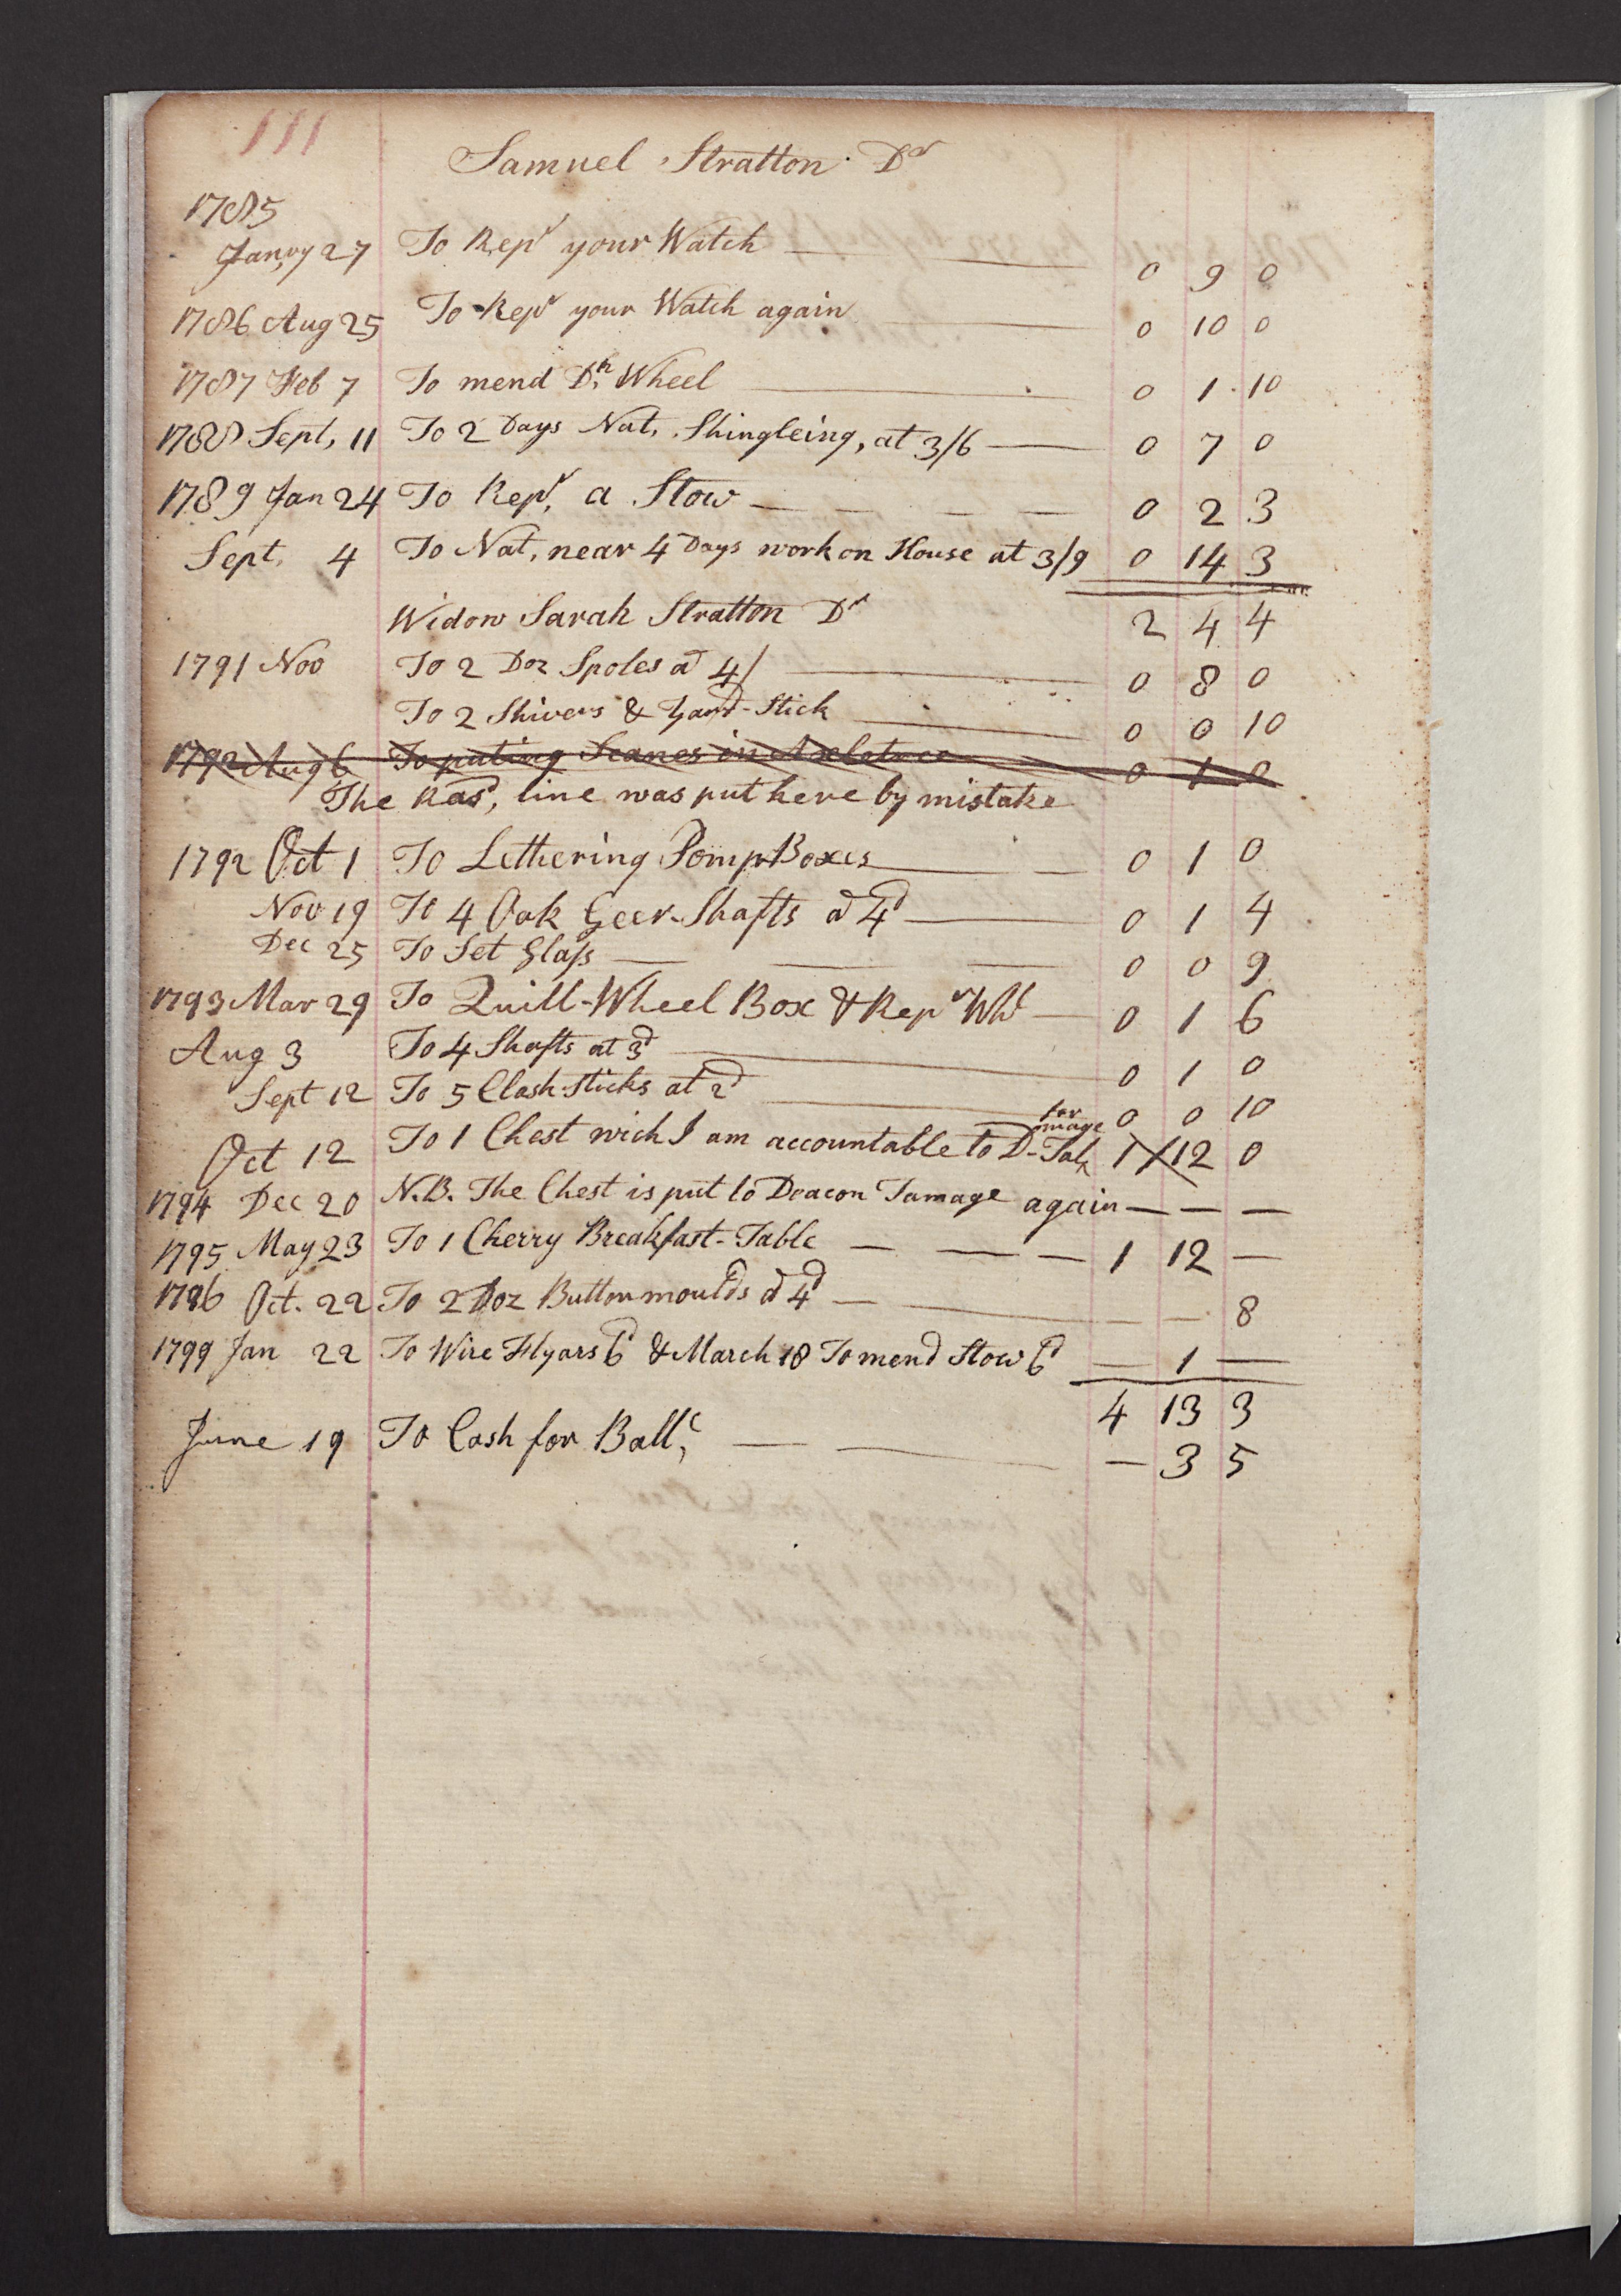 111
Samuel Stratton Dr
1785
Janry 27 To Repr your Watch 0 9 0
1786 Aug 25 To Repr your Watch again 0 10 0
1787 Feb 7 To mend Dh Wheel 0 1 10
1788 Sept, 11 To 2 Days Nat, Shingleing, at 3/6 0 7 0
1789 Jan 24 To Repr, a Stow 0 2 3
Sept. 4 To Nat, near 4 Days work on House at 3/9 0 14 3
Widow Sarah Stratton Dr 2 4 4
1791 Nov To 2 Doz Spoles a 4/ 0 8 0
To 2 Shivers & Yard-Stick 0 0 10
1792 Aug 6 To puting Seanes in Axletree 0 1 0
The Rasd, line was put here by mistake
1792 Oct 1 To Lethering Pomp Boxes 0 1 0
Nov 19 To 4 Oak Geer-Shafts a 4d 0 1 4
Dec 25 To Set Glass 0 0 9
1793 Mar 29 To Quill-Wheel Box & Repr Whl 0 1 6
Aug 3 To 4 Shafts at 3d 0 1 0
Sept 12 To 5 Clash-Sticks at 2d 0 0 10
Oct 12 To 1 Chest wich I am accountable to D-Tal 1 12 0
1794 Dec 20 N.B. The Chest is put to Deacon Tamage again — — —
1795 May 23 To 1 Cherry Breakfast-Table 1 12 —
1796 Oct. 22 To 2 Doz Buttonmoulds a 4d — — 8
1799 Jan 22 To Wire Flyars 6d & March 18 To mend Stow 6d — 1 —
4 13 3
June 19 To Cash for Ballc, — 3 5